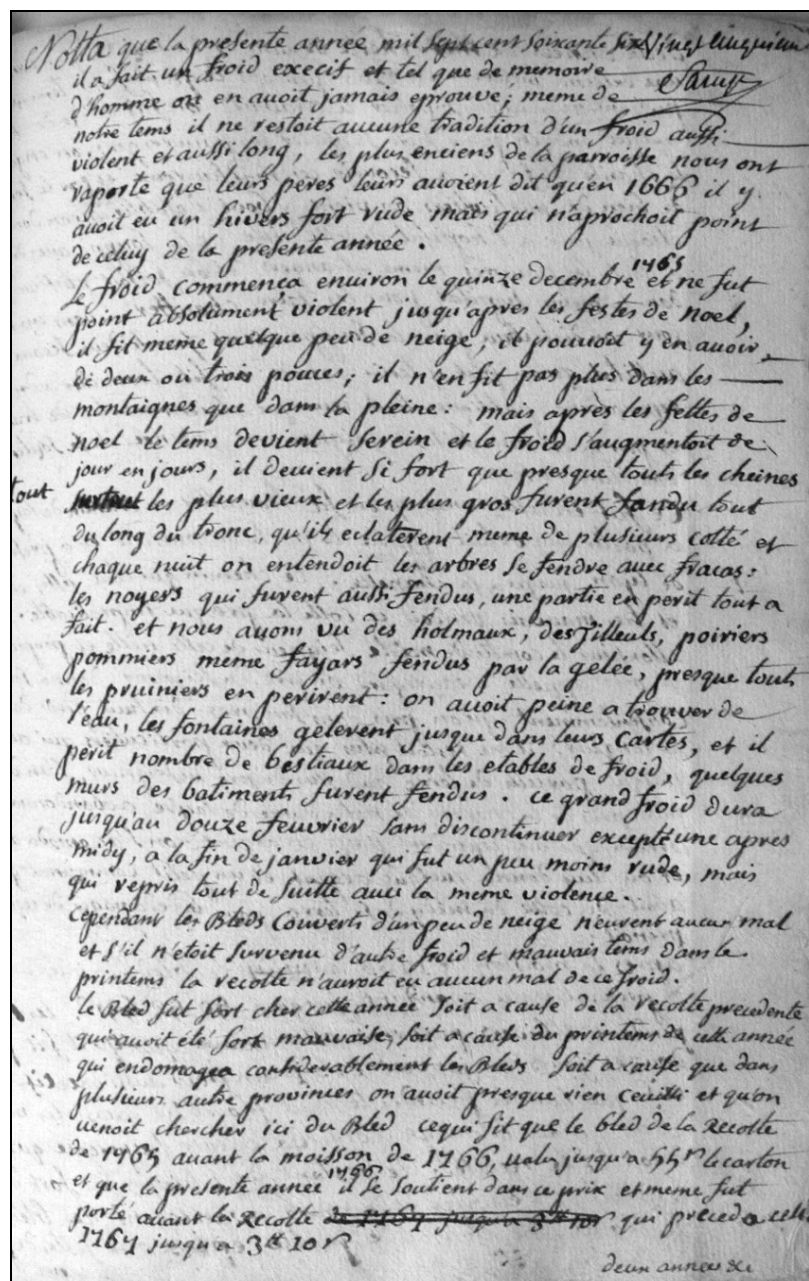 Notta que la presente année mil sept cent soixante six Vingt cinquieme
il a fait un froid execif et tel que de memoire
d'homme on en avoit jamais eprouvé; meme de
notre tems il ne restoit aucune tradition d'un froid aussi
violent et aussi long, les plus enciens de la parroisse nous ont
raporté que leurs peres leurs avoient dit qu'en 1666 il y
avoit eu un hivers fort rude mais qui n'aprochoit point
de celuy de la presente année.
Le froid commença environ le quinze decembre 1765 et ne fut
point absolument violent jusqu'apres les festes de noel,
il fit meme quelque peu de neige, il pouvoit y en avoir
de deux ou trois pouces; il n'en fit pas plus dans les
montaignes que dans la pleine: mais après les fettes de
noel le tems devient serein et le froid s'augmentoit de
jour en jours, il devient si fort que presque touts les cheines
tout les plus vieux et les plus gros furent fandu tout
du long du tronc, qu'ils eclaterent meme de plusieurs cotté et
chaque nuit on entendoit les arbres se fendre avec fracas:
les noyers qui furent aussi fendus, une partie en perit tout a
fait. et nous avons vu des holmaux, des Tilleuls, poiriers
pommiers meme fayars fendus par la gelée, presque touts
les pruiniers en perirent: on avoit peine a trouver de
l'eau, les fontaines gelerent jusque dans leurs cartes, et il
perit nombre de bestiaux dans les etables de froid, quelques
murs des batiments furent fendus. ce grand froid dura
jusqu'au douze feuvrier sans discontinuer excepté une apres
midy, a la fin de janvier qui fut un peu moins rude, mais
qui repris tout de suitte avec la meme violence.
Cependant les Bleds Couverts d'un peu de neige n'eurent aucun mal
et s'il n'etoit survenu d'autre froid et mauvais tems dans le
printems la recolte n'auroit eu aucun mal de ce froid.
le Bled fut fort cher cette année soit a cause de la recolte precedente
qui avoit été fort mauvaise, soit a cause du printems de cette année
qui endomagea considerablement les Bleds soit a cause que dans
plusieurs autre provinces on avoit presque rien ceuilli et qu'on
venoit chercher ici du Bled ce qui fit que le bled de la Recolte
de 1765 avant la moisson de 1766, valu jusqu'a 55ˢ le carton
et que la presente année 1766 il se soutient dans ce prix et meme fut
porté avant la Recolte de 1767 jusqu'a 3ᵗᵗ 10ˢ qui preceda celle
1767 jusqu'a 3ᵗᵗ 10ˢ
deux années &c